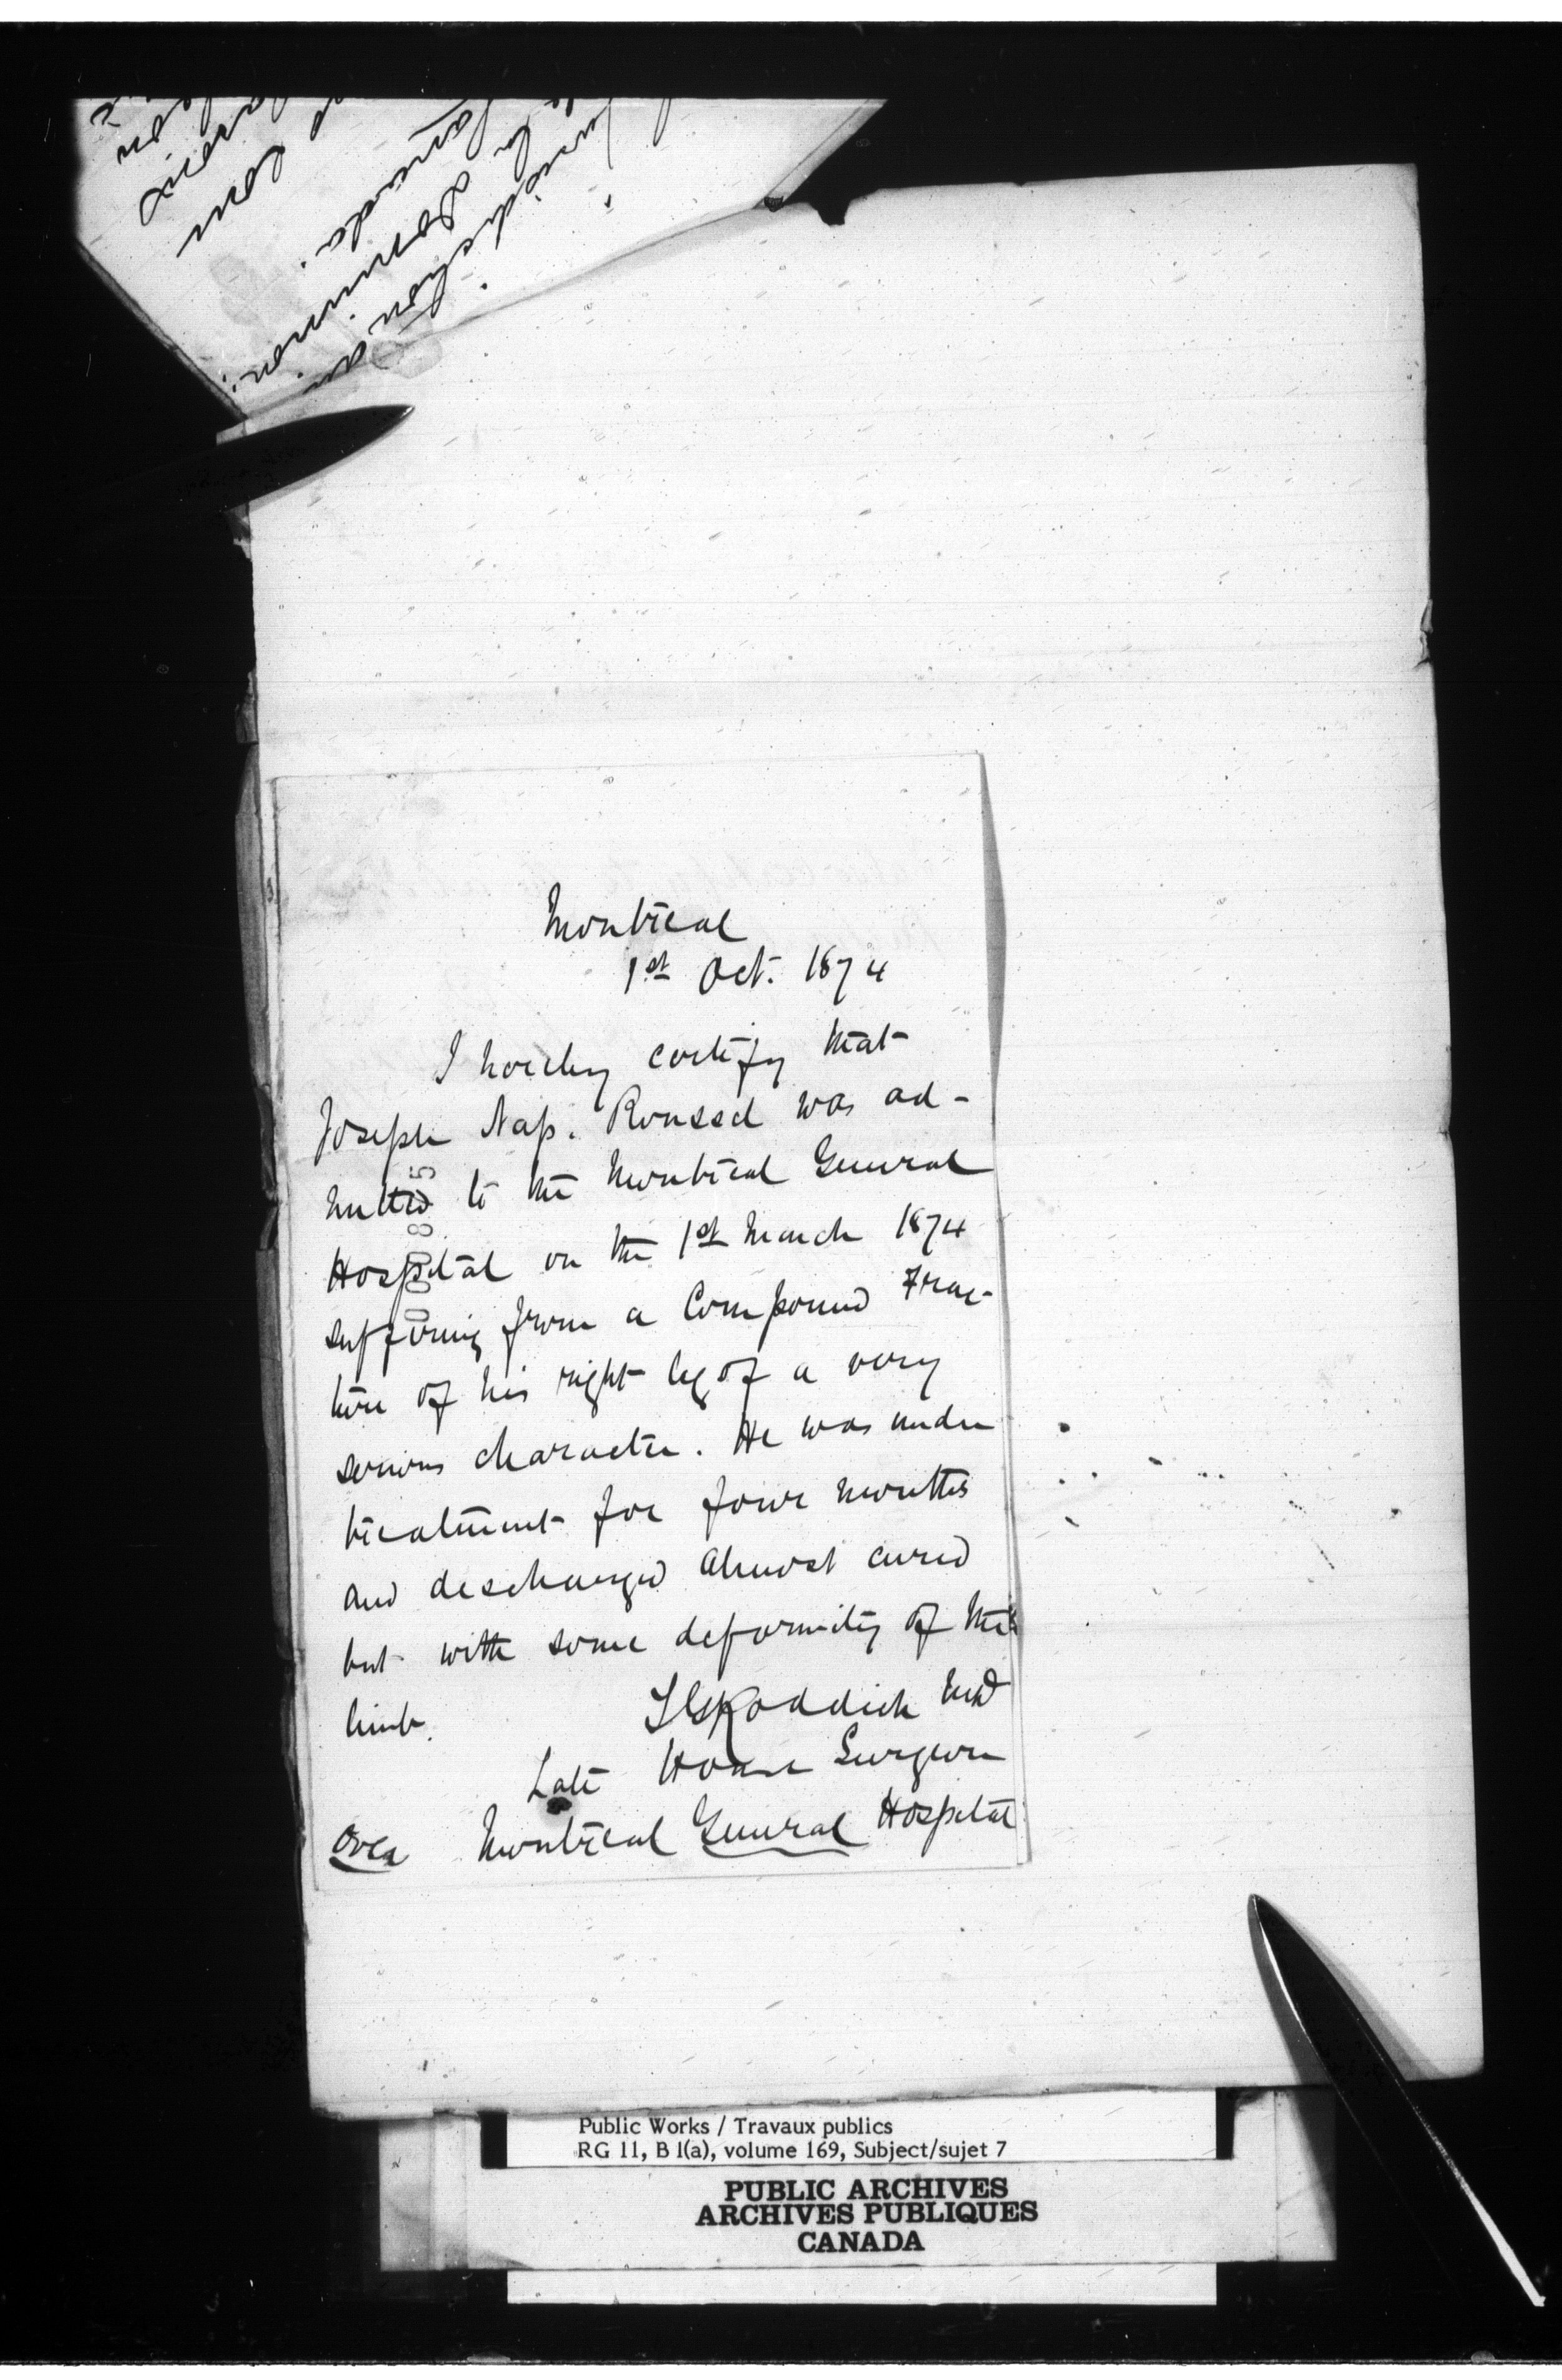 Montreal
1st Oct. 1874
I hereby certify that
Joseph Nap. Roussel was ad-
mitted to the Montreal General
Hospital on the 1st March 1874
suffering from a Compound Frac-
ture of his right leg of a very
serious character. He was under
treatment for four months
and discharged almost cured
but with some deformity of the
limb.
T G Roddick MD
Late House Surgeon
Over Montreal General Hospital
Public Works / Travaux publics
RG 11, B 1(a), volume 169, Subject/sujet 7
PUBLIC ARCHIVES
ARCHIVES PUBLIQUES
CANADA